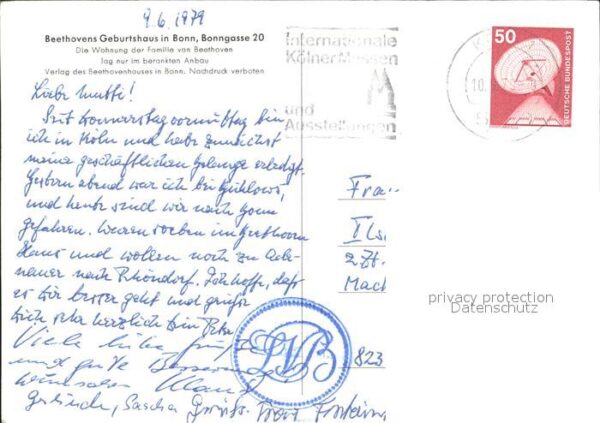 9.6.1979
Beethovens Geburtshaus in Bonn, Bonngasse 20
Die Wohnung der Familie van Beethoven
lag nur im berankten Anbau
Verlag des Beethovenhauses in Bonn. Nachdruck verboten
Internationale
Kölner Messen
und
Ausstellungen
50
DEUTSCHE BUNDESPOST
K
10.
Liebe Mutti!
Seit Donnerstag vormittag bin
ich in Köln und habe zunächst
meine geschäftlichen Belange erledigt.
Gestern abend war ich bei
und heute sind wir nach Bonn
gefahren. Waren soeben im Beethoven
Haus und wollen noch zu Ade-
nauer nach Rhöndorf. Ich hoffe, daß
es Dir besser geht und grüße
Dich sehr herzlich Dein Peter
Viele liebe Grüße
und gute Besserung
wünschen Klaus
Gerlinde, Sascha
Frau
Ils
z.Zt.
Mach
823
LVB
privacy protection
Datenschutz